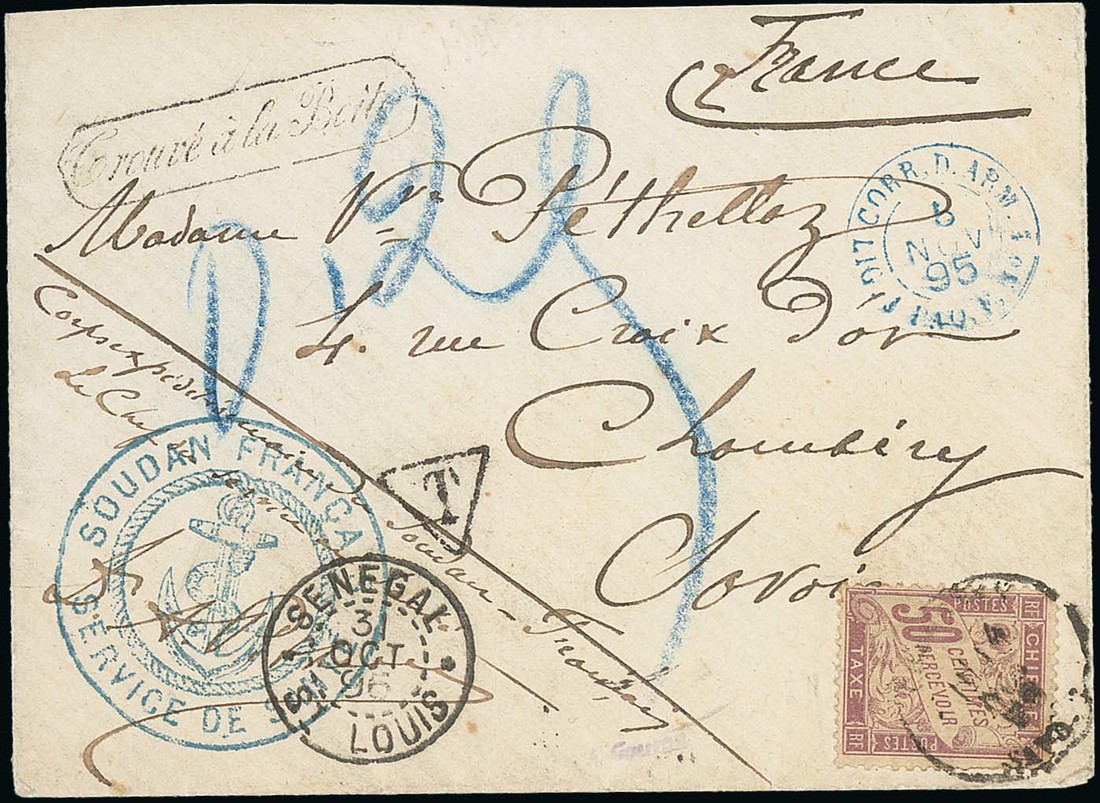 France
Trouvé à la Boîte
CORR. D. ARM.
5
NOV
95
Madame Vve Péthellaz
4. rue Croix d'or
Chambéry
Savoie
Corps expéditionnaire Soudan-Français
Le Chef
T
SOUDAN FRANÇA
SERVICE DE
SENEGAL
31
OCT
95
ST LOUIS
POSTES
CHIFFRE
50
CENTIMES
A PERCEVOIR
TAXE
POSTES
RE